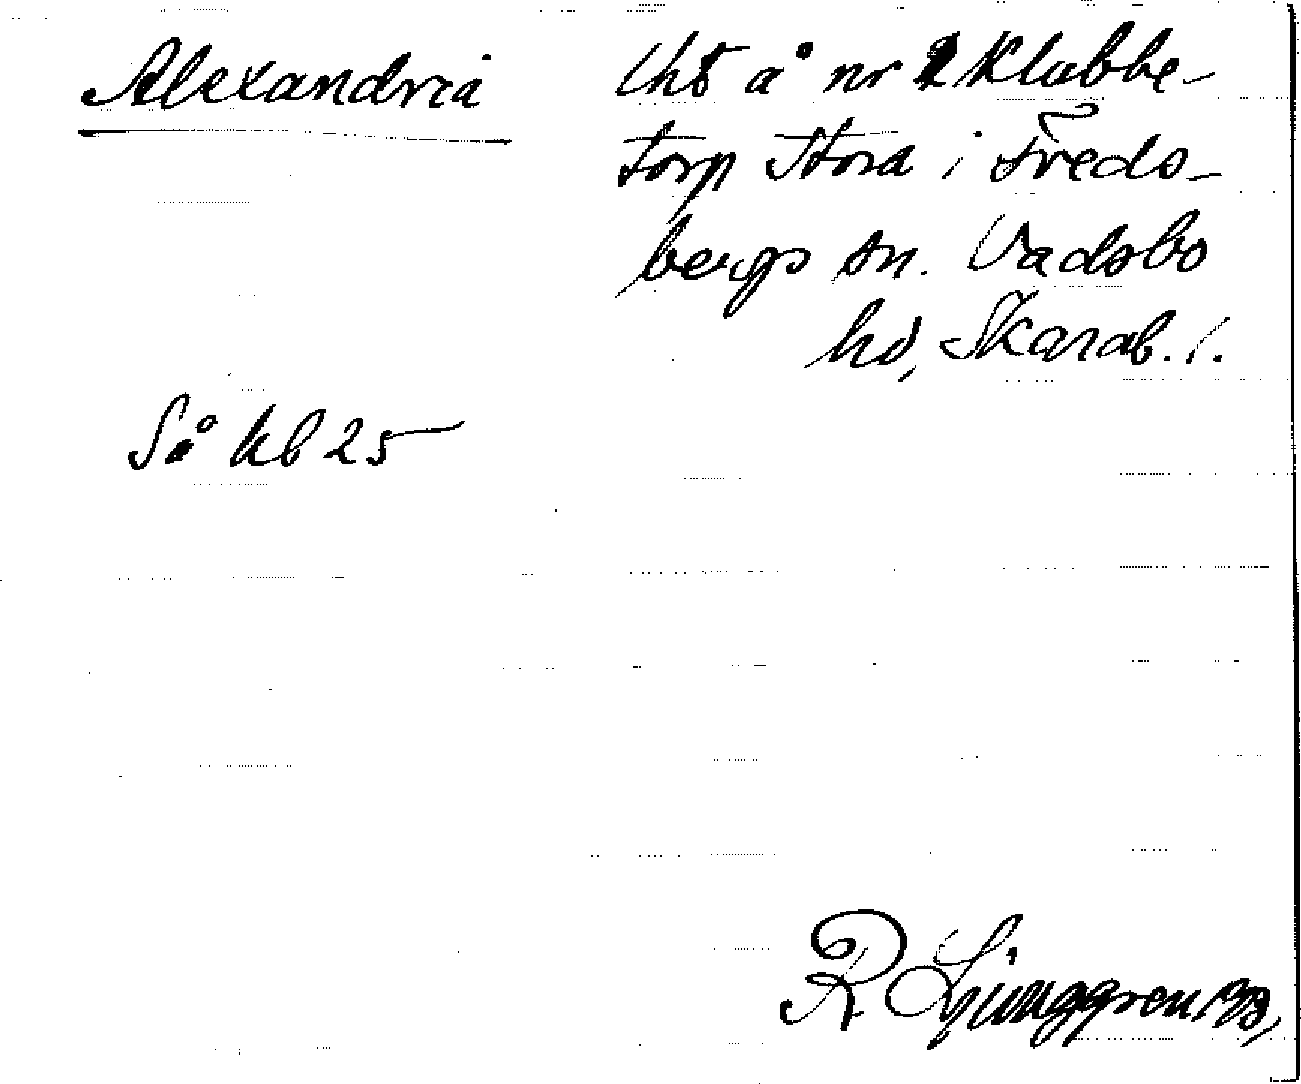 Alexandria
Lht å nr 2 Klabbe-
torp Stora i Freds-
bergs sn. Vadsbo
hd, Skarab. l.
Så kb 25
R Ljunggren